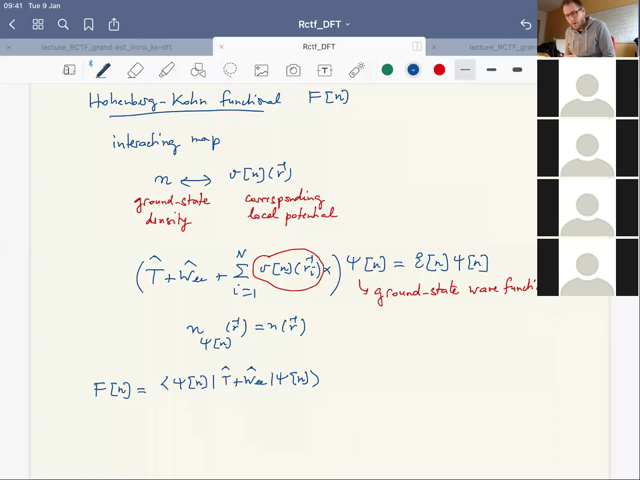 09:41 Tue 9 Jan
Rctf_DFT
lecture_RCTF_grand-est_intro_ks-dft
Rctf_DFT
Hohenberg-Kohn functional F[n]
interacting map
n ⟷ v[n](r⃗)
ground-state density
corresponding local potential
(T̂ + Ŵee + Σ_{i=1}^{N} v[n](r⃗_i) ×) Ψ[n] = Ɛ[n] Ψ[n]
↳ ground-state wave functi
n_{Ψ[n]}(r⃗) = n(r⃗)
F[n] = ⟨Ψ[n]| T̂ + Ŵee |Ψ[n]⟩